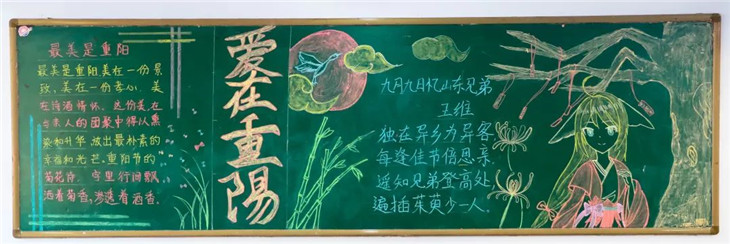 最美是重阳
最美是重阳美在一份景
致，美在一份孝心，美
在诗酒情怀。这份美在
与亲人的团聚中得以熏
染和升华，放出最朴素的
幸福和光芒。重阳节的
菊花诗，字里行间飘
洒着菊香，渗透着酒香。
爱在重陽
九月九日忆山东兄弟
王维
独在异乡为异客
每逢佳节倍思亲，
遥知兄弟登高处
遍插茱萸少一人。